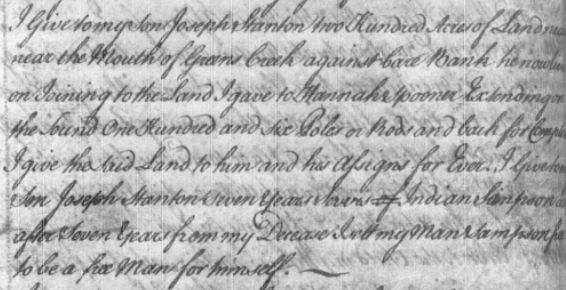 I Give to my Son Joseph Stanton two Hundred Acres of Land
near the Mouth of Greens Creek against Bank he now
on Joining to the Land I gave to Hannah Spooner Extending on
the Sound One Hundred and Six Poles or Rods and back for
I give the said Land to him and his Assigns for Ever. I Give to my
Son Joseph Stanton Seven Years of Indian Sampson
after Seven Years from my Decease I will my Man Sampson
to be a free Man for himself.